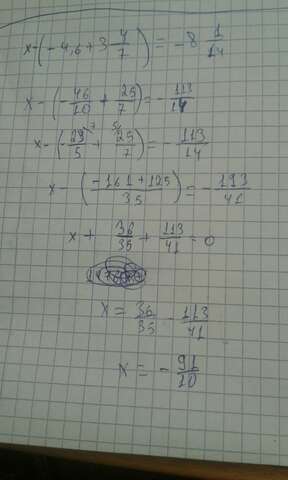 x-(-4,6+3 4/7)=-8 1/14
x-(-46/10+25/7)=-113/14
x-(-23/5 7+5 25/7)=-113/14
x-(-161+125/35)=-113/41
x+36/35+113/41=0
x=36/35-113/41
x=-91/10